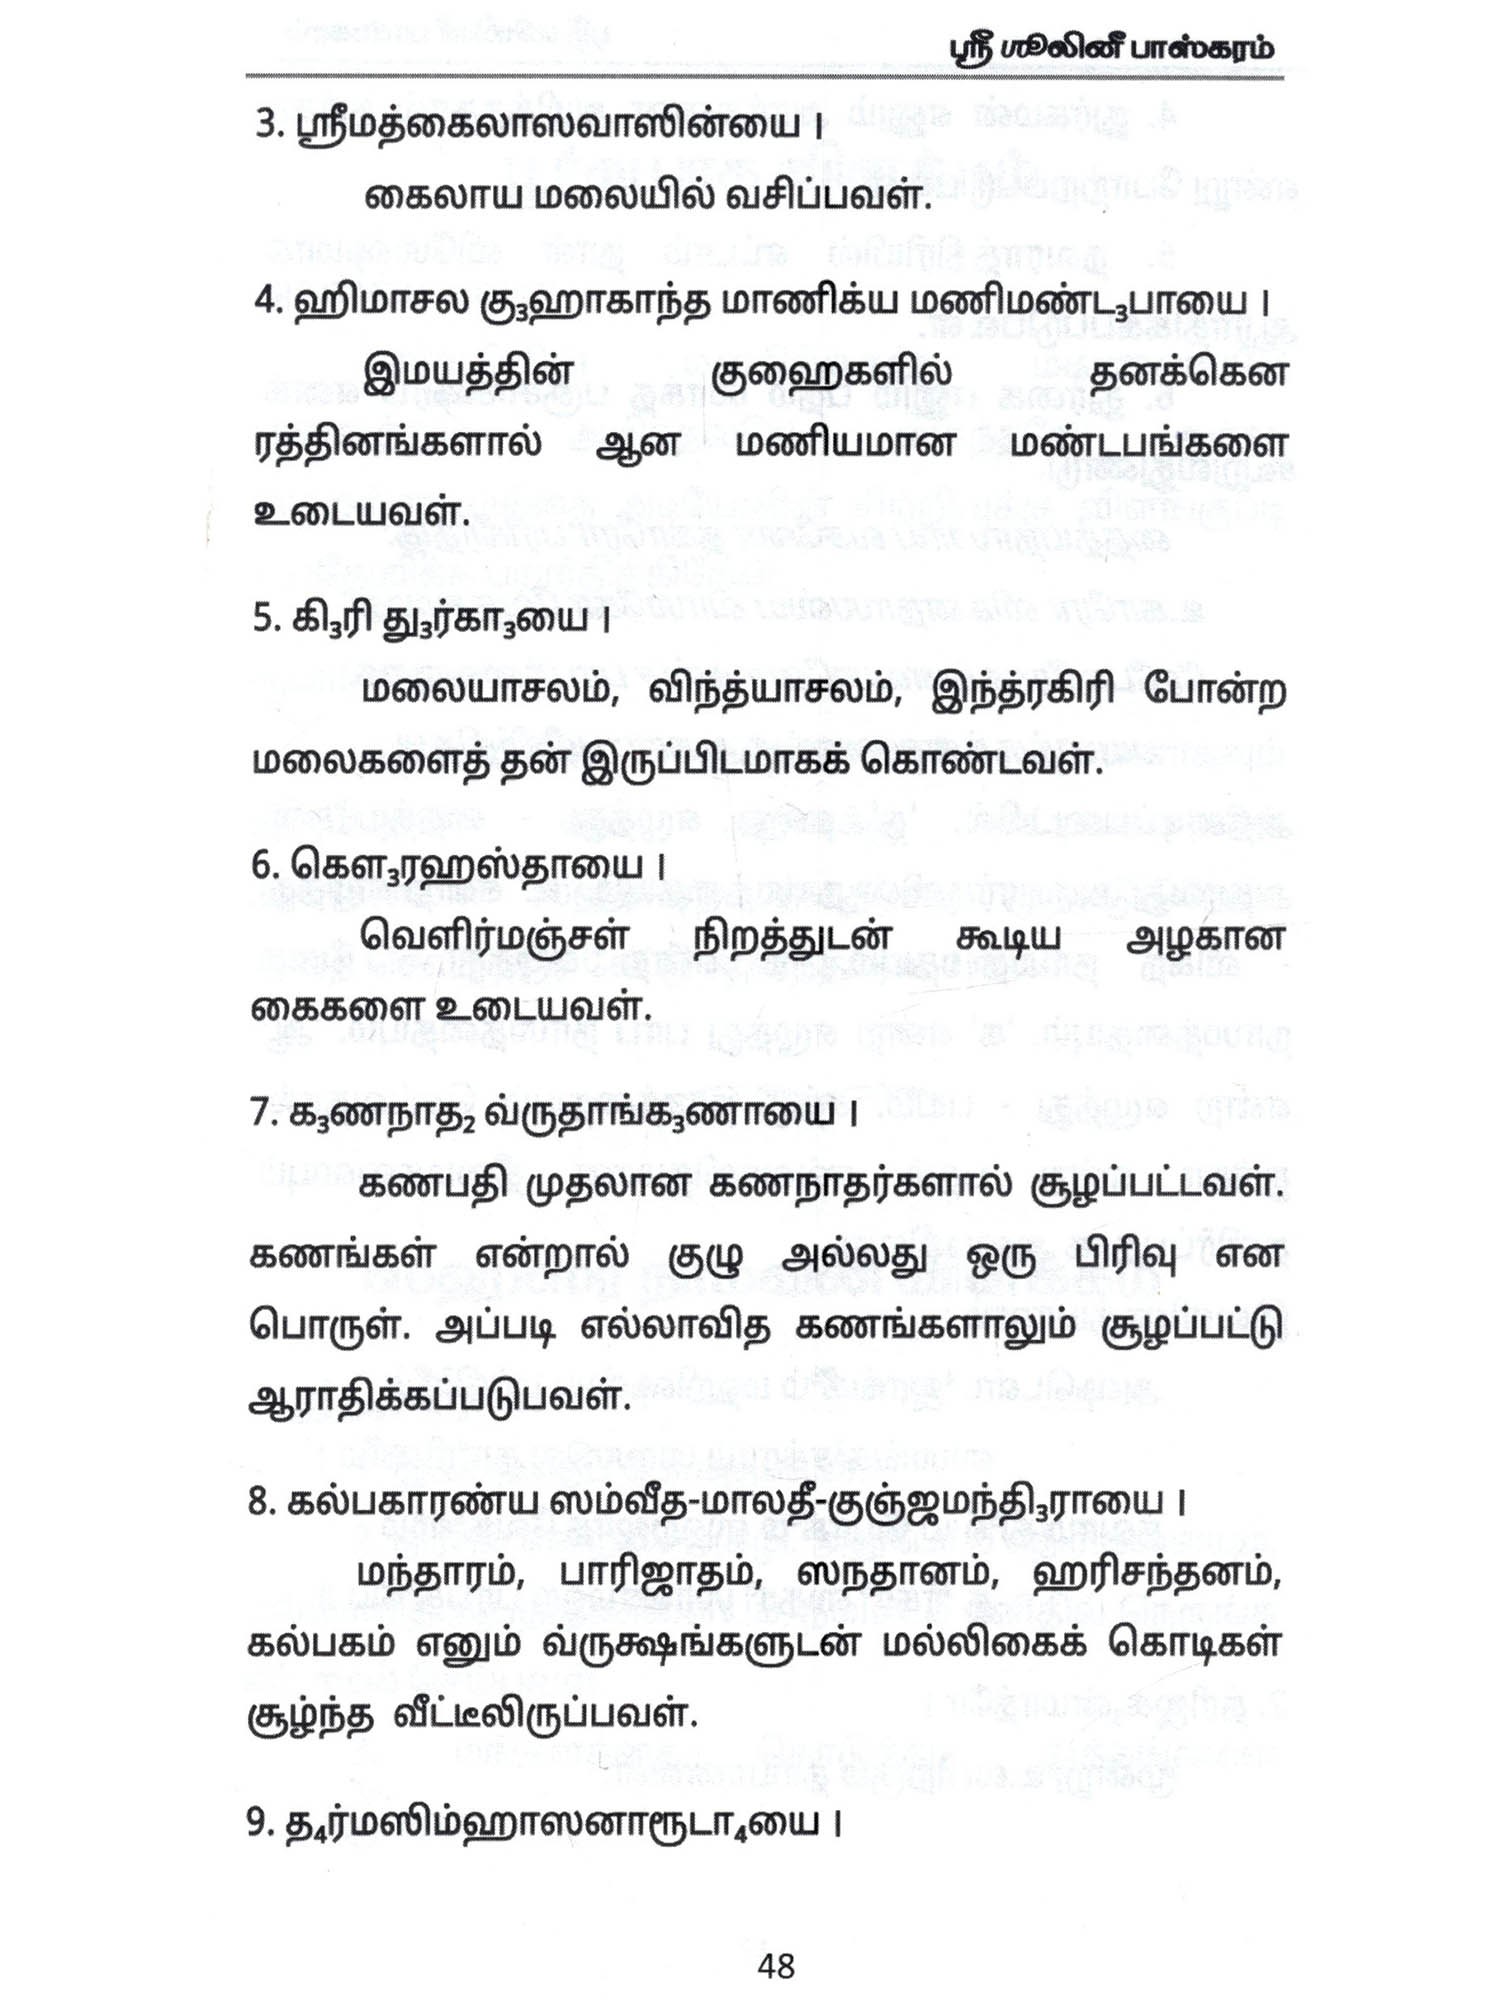 ஸ்ரீ ஶூலினீ பாஸ்கரம்
3. ஸ்ரீமத்கைலாஸவாஸின்யை ।
கைலாய மலையில் வசிப்பவள்.
4. ஹிமாசல கு₃ஹாகாந்த மாணிக்ய மணிமண்ட₃பாயை ।
இமயத்தின் குஹைகளில் தனக்கென
ரத்தினங்களால் ஆன மணியமான மண்டபங்களை
உடையவள்.
5. கி₃ரி து₃ர்கா₃யை ।
மலையாசலம், விந்த்யாசலம், இந்தரகிரி போன்ற
மலைகளைத் தன் இருப்பிடமாகக் கொண்டவள்.
6. கௌ₃ரஹஸ்தாயை ।
வெளிர்மஞ்சள் நிறத்துடன் கூடிய அழகான
கைகளை உடையவள்.
7. க₃ணநாத₂ வ்ருதாங்க₃ணாயை ।
கணபதி முதலான கணநாதர்களால் சூழ்ப்பட்டவள்.
கணங்கள் என்றால் குழு அல்லது ஒரு பிரிவு என
பொருள். அப்படி எல்லாவித கணங்களாலும் சூழப்பட்டு
ஆராதிக்கப்படுபவள்.
8. கல்பகாரண்ய ஸம்வீத-மாலதீ-குஞ்ஜமந்தி₃ராயை ।
மந்தாரம், பாரிஜாதம், ஸந்தானம், ஹரிசந்தனம்,
கல்பகம் எனும் வ்ருக்ஷங்களுடன் மல்லிகைக் கொடிகள்
சூழ்ந்த வீட்டீலிருப்பவள்.
9. த₄ர்மஸிம்ஹாஸனாரூடா₄யை ।
48